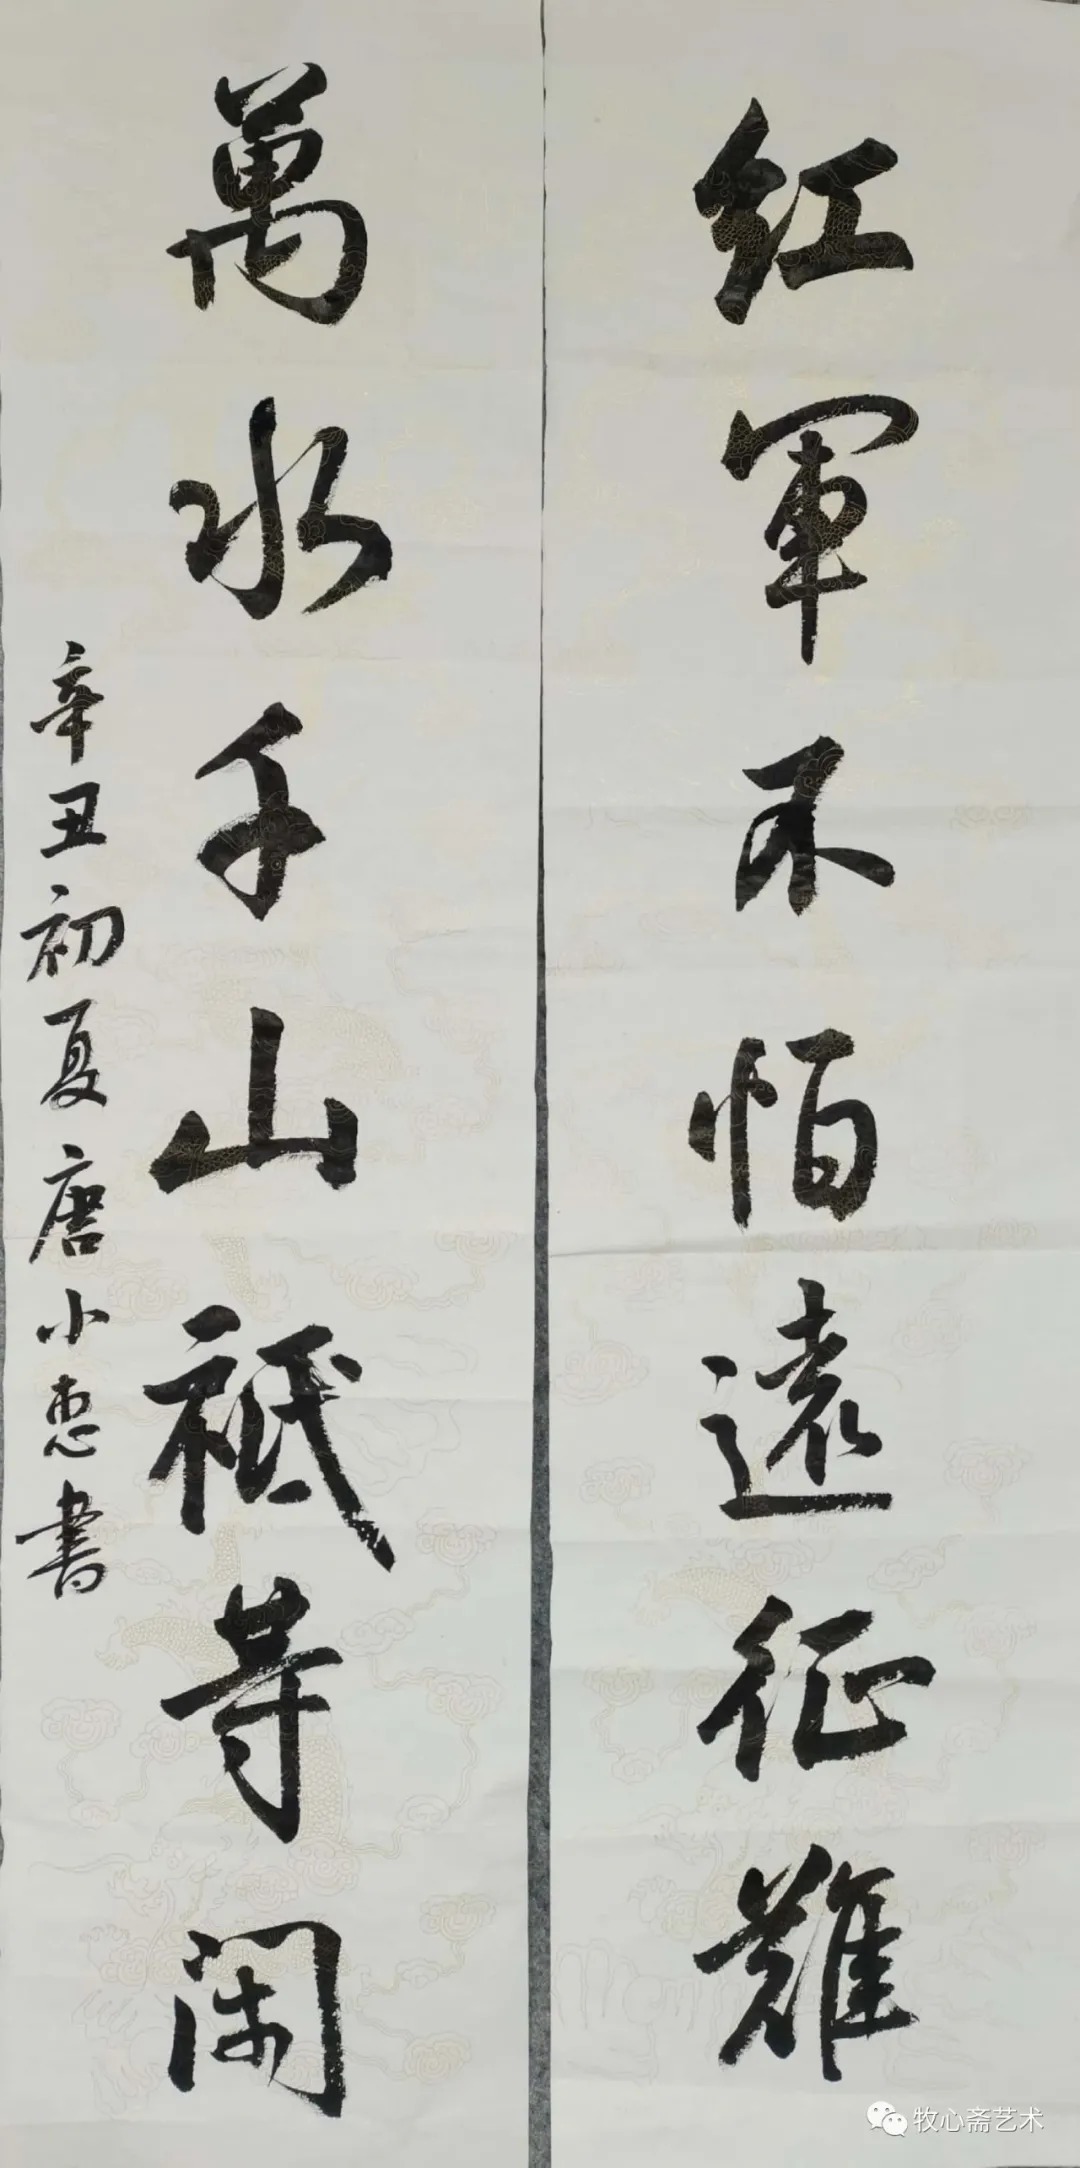 紅軍不怕遠征難
萬水千山祇等閑
辛丑初夏唐小惠書
牧心斋艺术